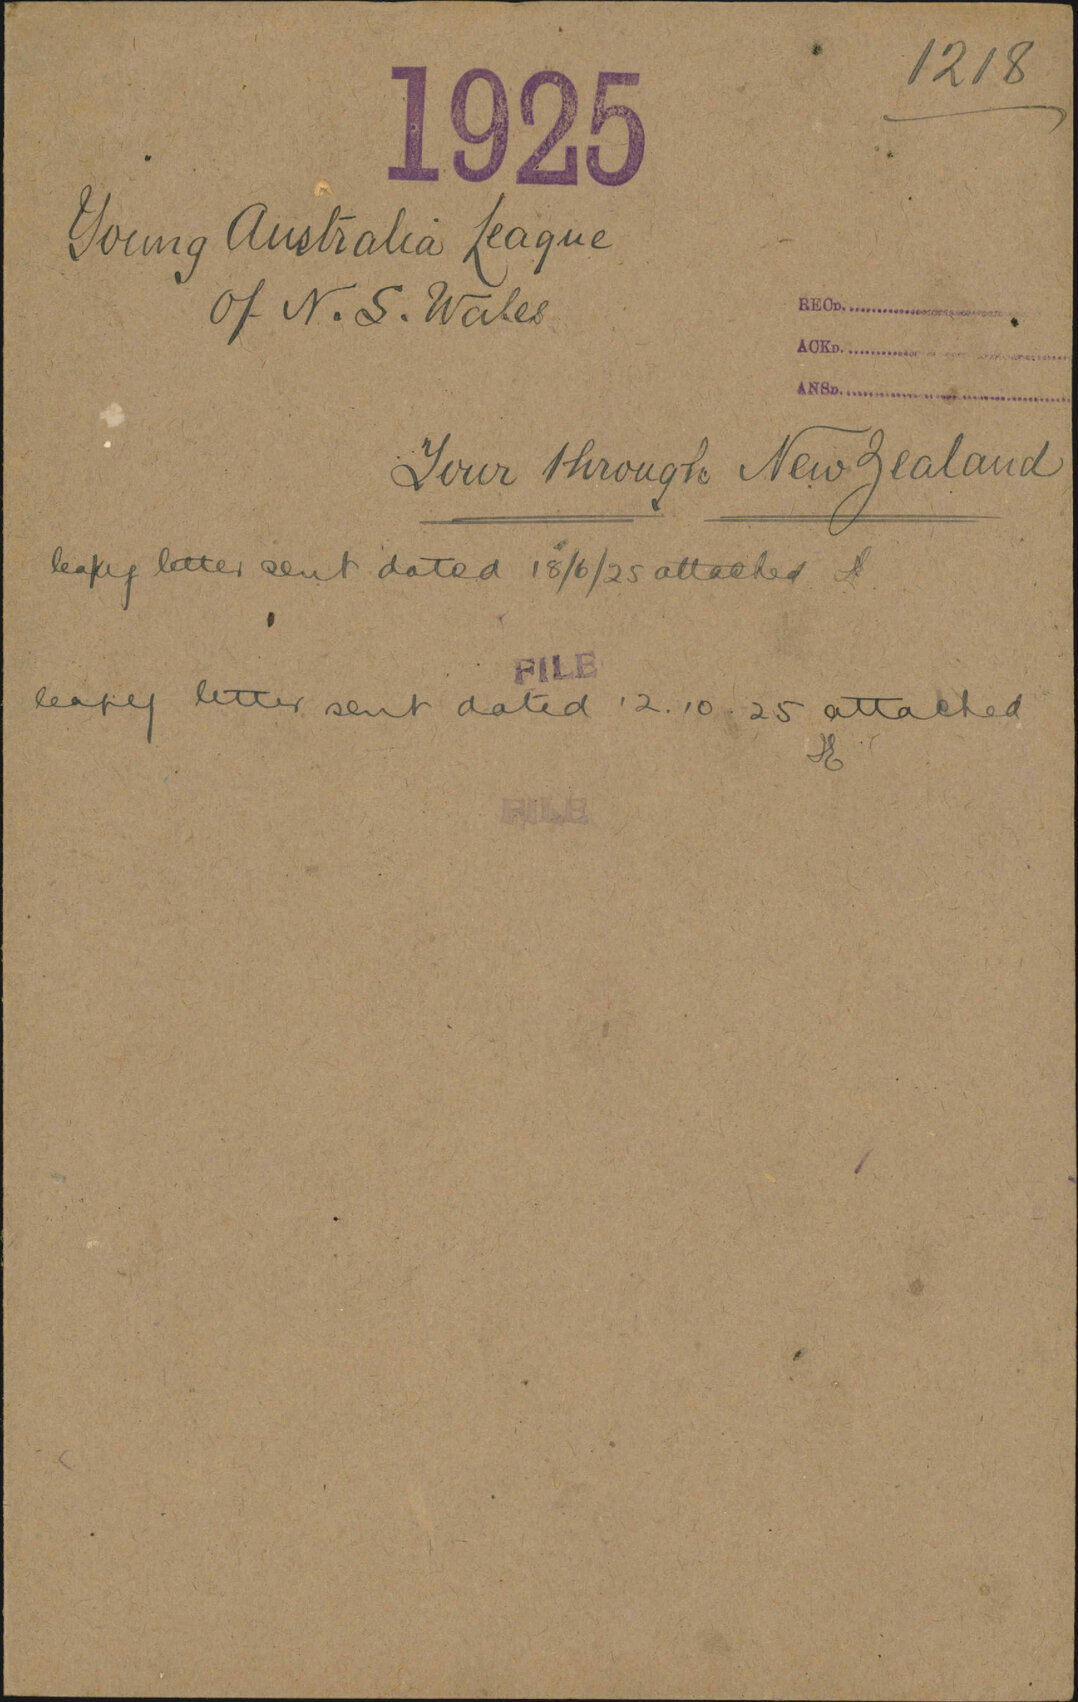 1218
1925
Young Australia League
of N. S. Wales
RECD.
ACKD.
ANSD.
Tour through New Zealand
Copy letter sent dated 18/6/25 attached
FILE
Copy letter sent dated 12.10.25 attached
FILE